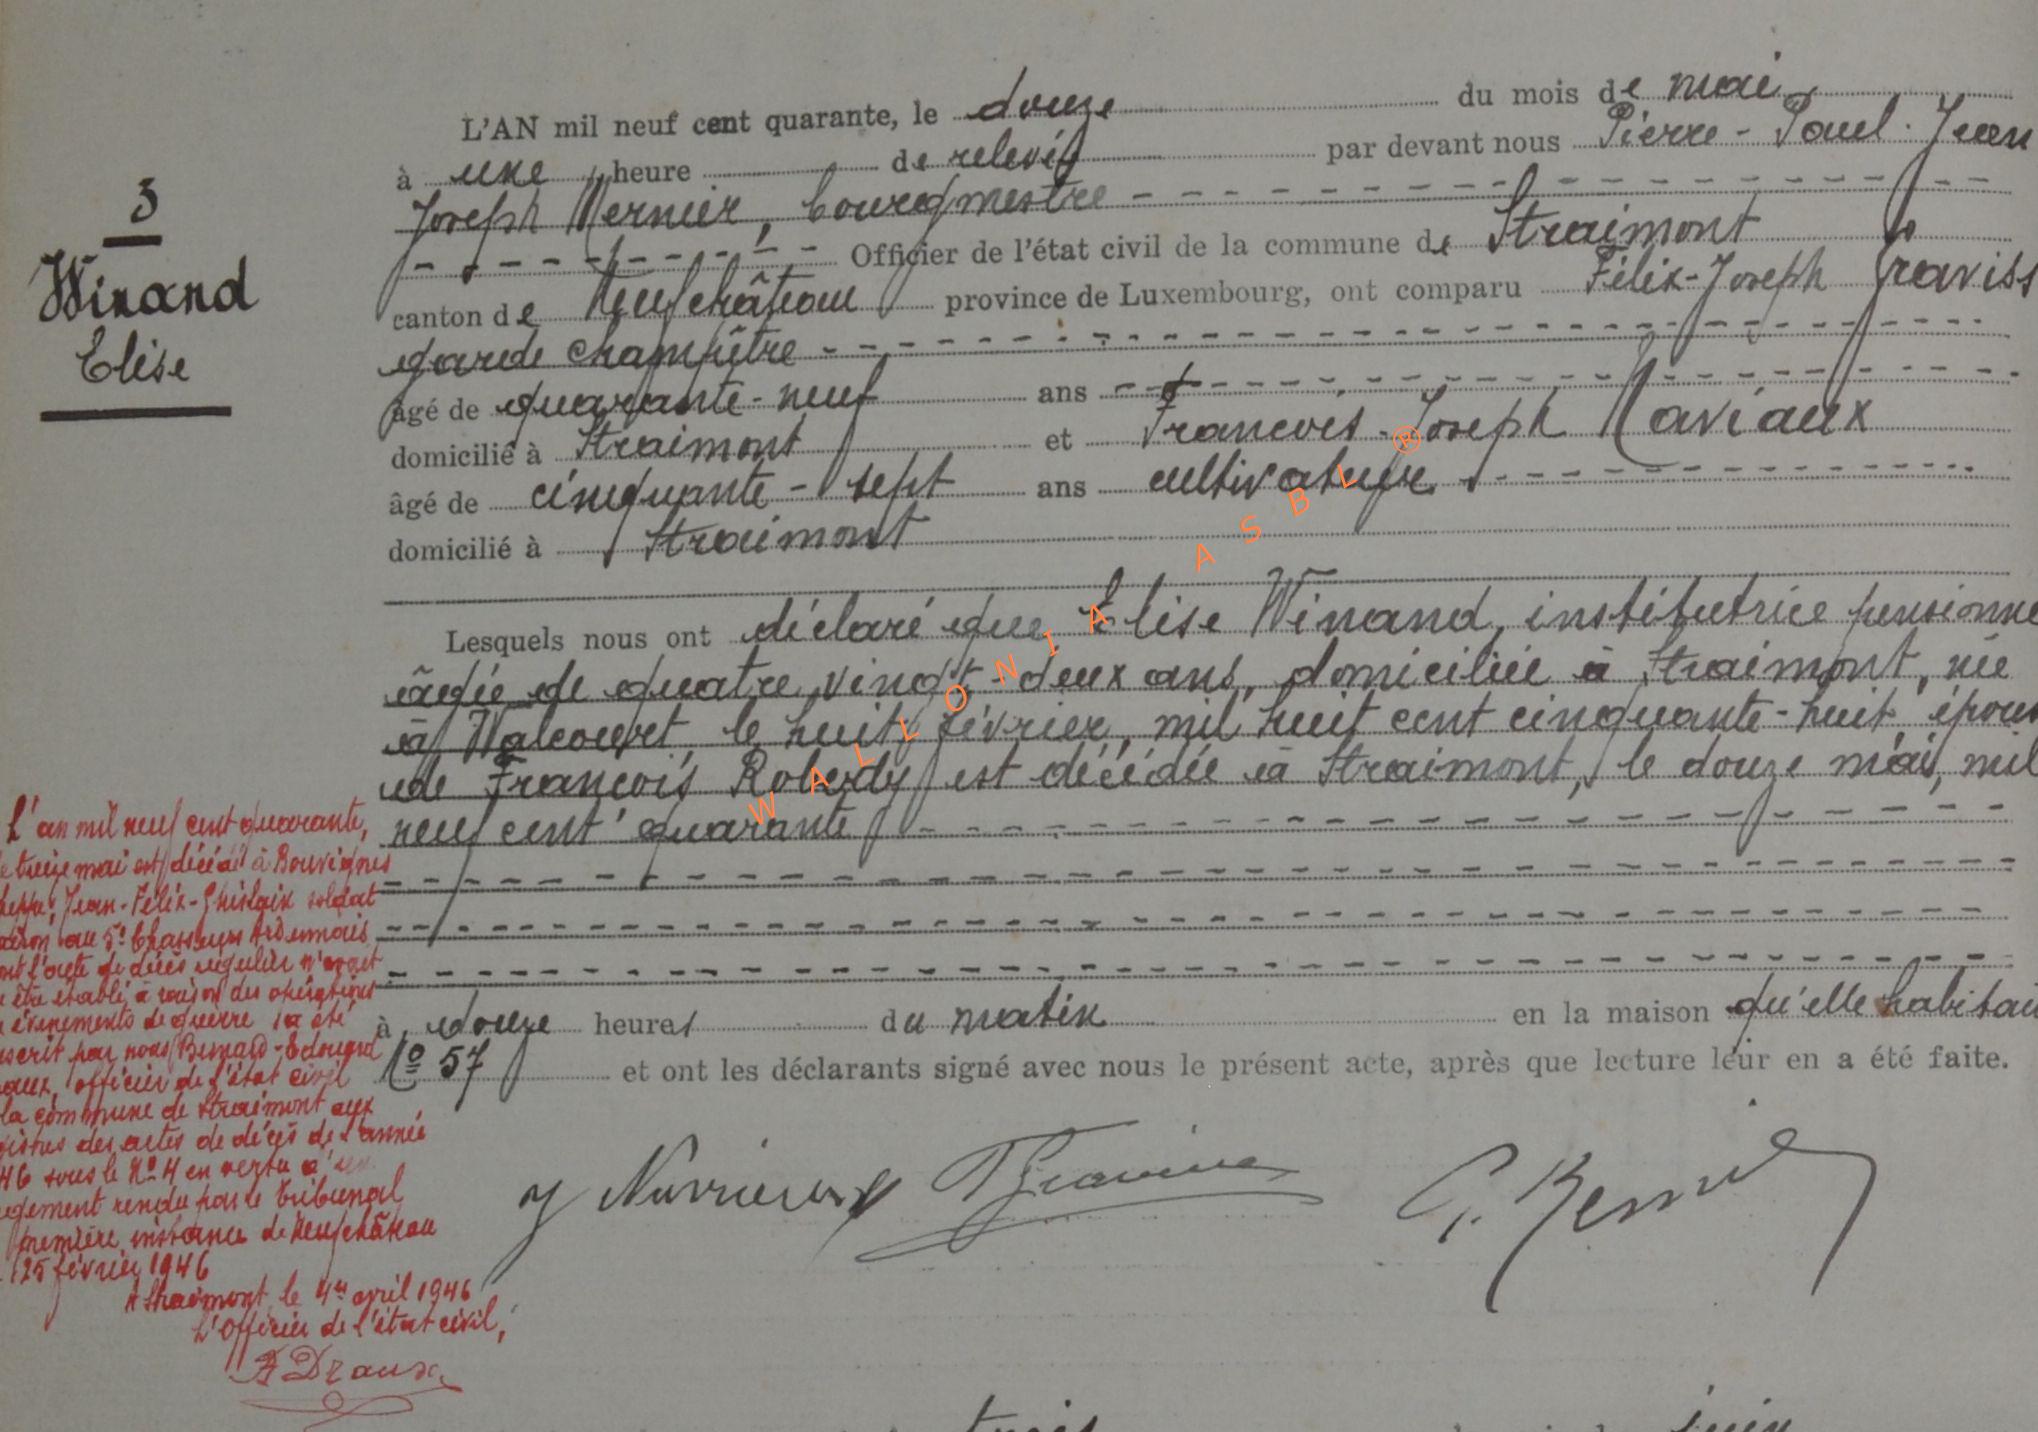 3
Winand
Elise
L'AN mil neuf cent quarante, le douze du mois de mai
à une heure de relevée par devant nous Pierre-Paul-Jean
Joseph bourgmestre
Officier de l'état civil de la commune de Straimont
canton de Neufchâteau province de Luxembourg, ont comparu Félix-Joseph
garde champêtre
âgé de quarante-neuf ans
domicilié à Straimont et François-Joseph
âgé de cinquante-sept ans cultivateur
domicilié à Straimont
Lesquels nous ont déclaré que Elise Winand, institutrice
âgée de quatre vingt-deux ans, domiciliée à Straimont, née
à Walcourt le huit février mil huit cent cinquante-huit,
de François est décédée à Straimont, le douze mai, mil
neuf cent quarante
à douze heures du matin en la maison qu'elle
No 57 et ont les déclarants signé avec nous le présent acte, après que lecture leur en a été faite.
L'an mil neuf cent quarante,
treize mai est décédé à Bouvignes
Jean-Félix-Ghislain soldat
au 5e Chasseurs Ardennais
l'acte de décès régulier n'ayant
être établi à raison des opérations
événements de guerre a été
par nous
officier de l'état civil
la commune de Straimont aux
des actes de décès de l'année
46 sous le No 4 en vertu
rendu par le tribunal
première instance de Neufchâteau
25 février 1946
A Straimont, le 4 avril 1946
L'officier de l'état civil,
WALLONIA ASBL ®
juin